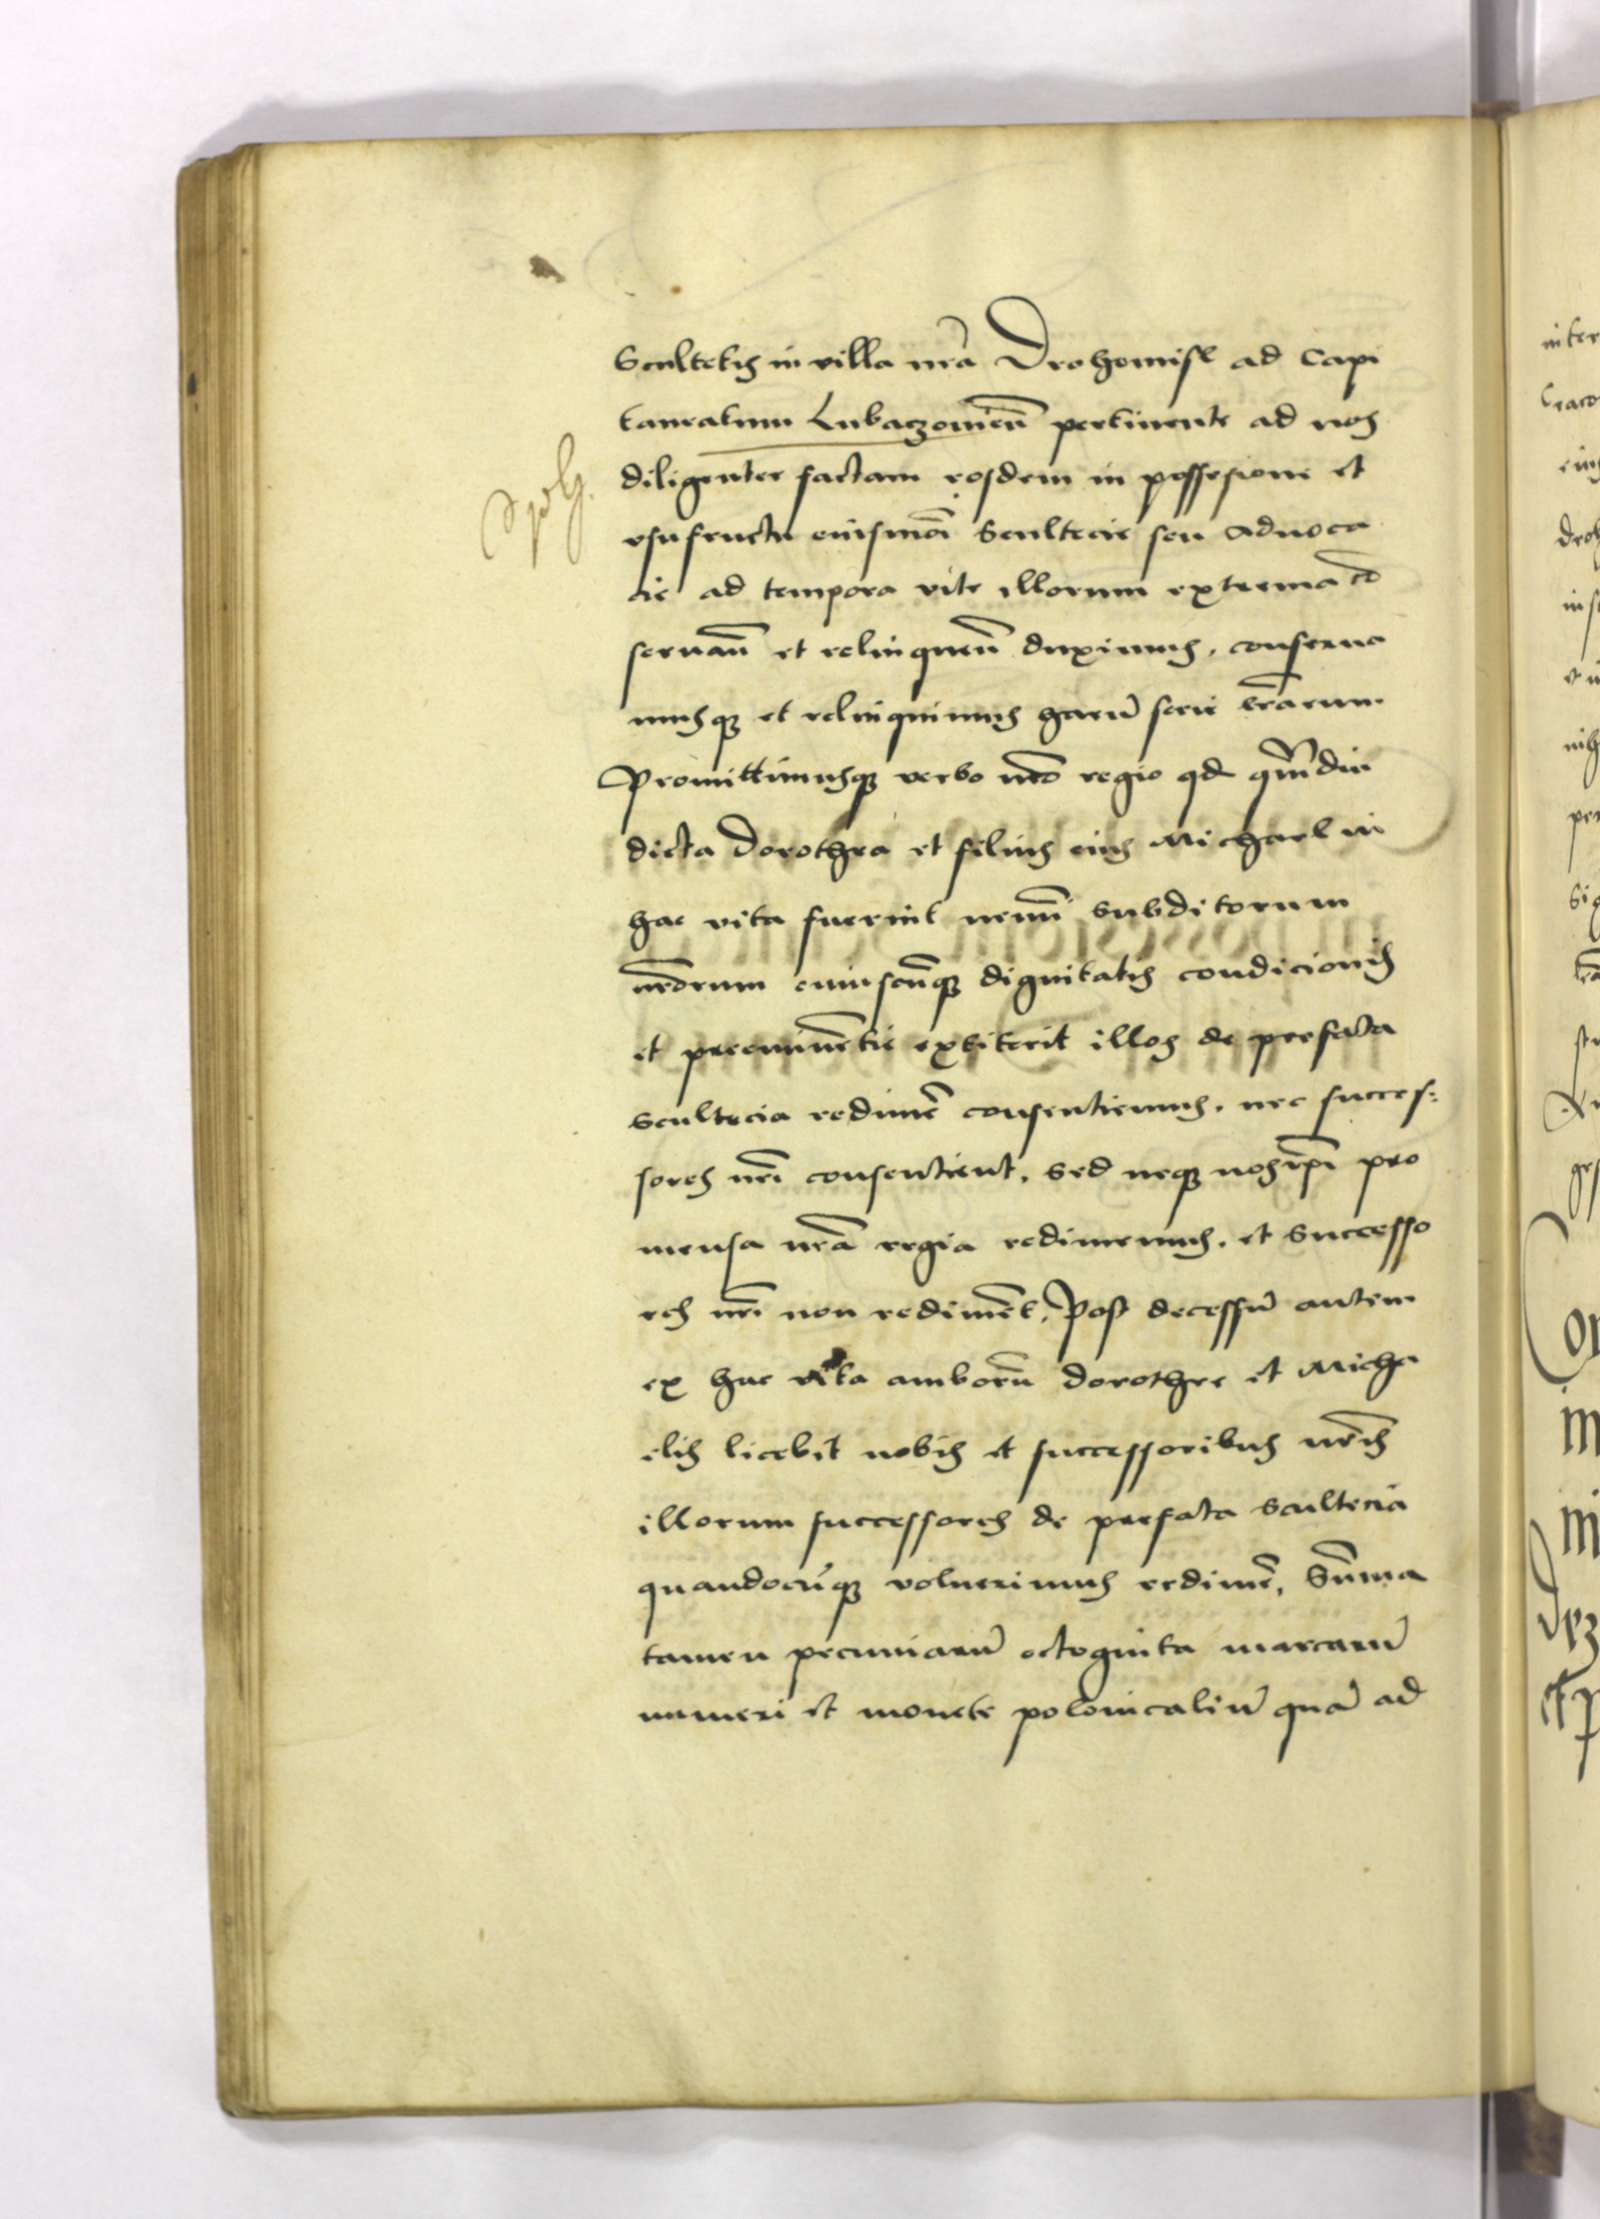 Scultetis in villa nrã Drohomisl ad Capi
taneatum Lubaczowieñ pertinente ad nos
diligenter factam eosdem in possesione et
vsufructu eiusmõi Scultecie seu Aduoca
cie ad tempora vite illorum extrema cõ
seruañ et relinqueñ duximus, conserua
musq; et relinquimus harũ serie lrãrum
Promittimusq; verbo nrõ regio qd qmdiu
dicta Dorothea et filius eius Michael in
hac vita fuerint nemĩ Subditorum
nrõrum cuiuscũq; dignitatis condicionis
et preeminẽtie extiterit illos de prefacta
Scultecia redimẽ consentiemus, nec succes:
sores nrĩ consentient, Sed neq; nosipĩ pro
mensa nrã regia redimemus, et Successo
res nrĩ non redimẽt, Post decessũ autem
ex hac vita amborũ Dorothee et Micha
elis licebit nobis et successoribus nrĩs
illorum successores de prefata Scultecia
quandocũq; voluerimus redimẽ, Sũma
tamen pecuniarũ octoginta marcarũ
numeri et monete polonicaliũ quã ad
inter